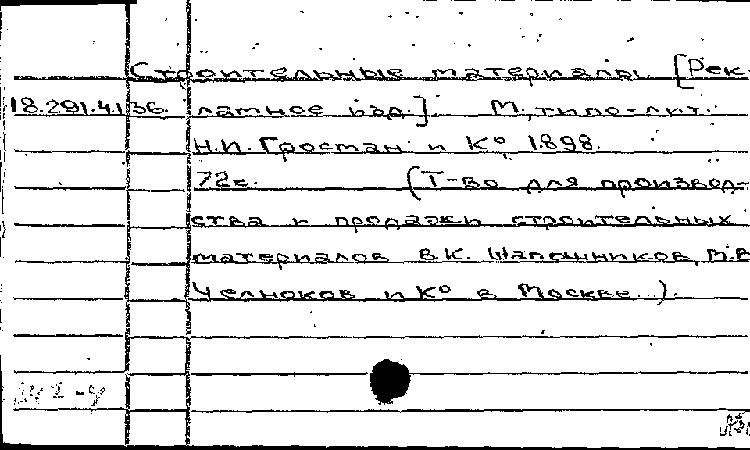 Строительные материалы. [Рек-
18.291.4.136. ламное изд.]. М., типо-лит.
Н.И. Гростман и Кº, 1898.
72с. (Т-во для производ-
ства и продажи строительных
материалов В.К. Шапошников, М.В.
Челноков и Кº в Москве.).